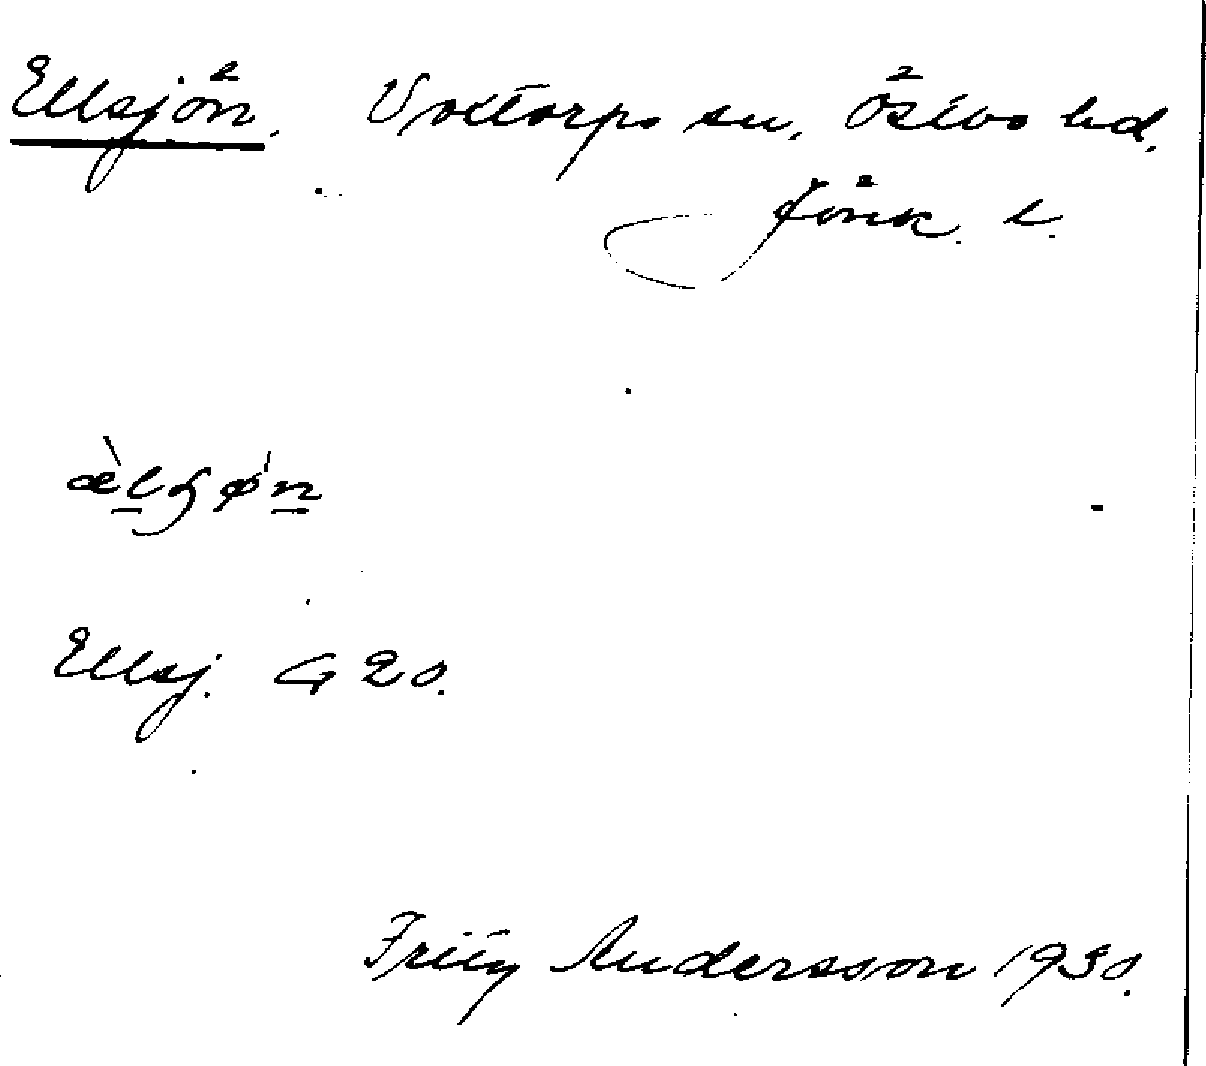 Ellsjön. Voxtorps sn, Östbo hd,
Jönk. l.
Ellsj. G 20.
Fritz Andersson 1930.